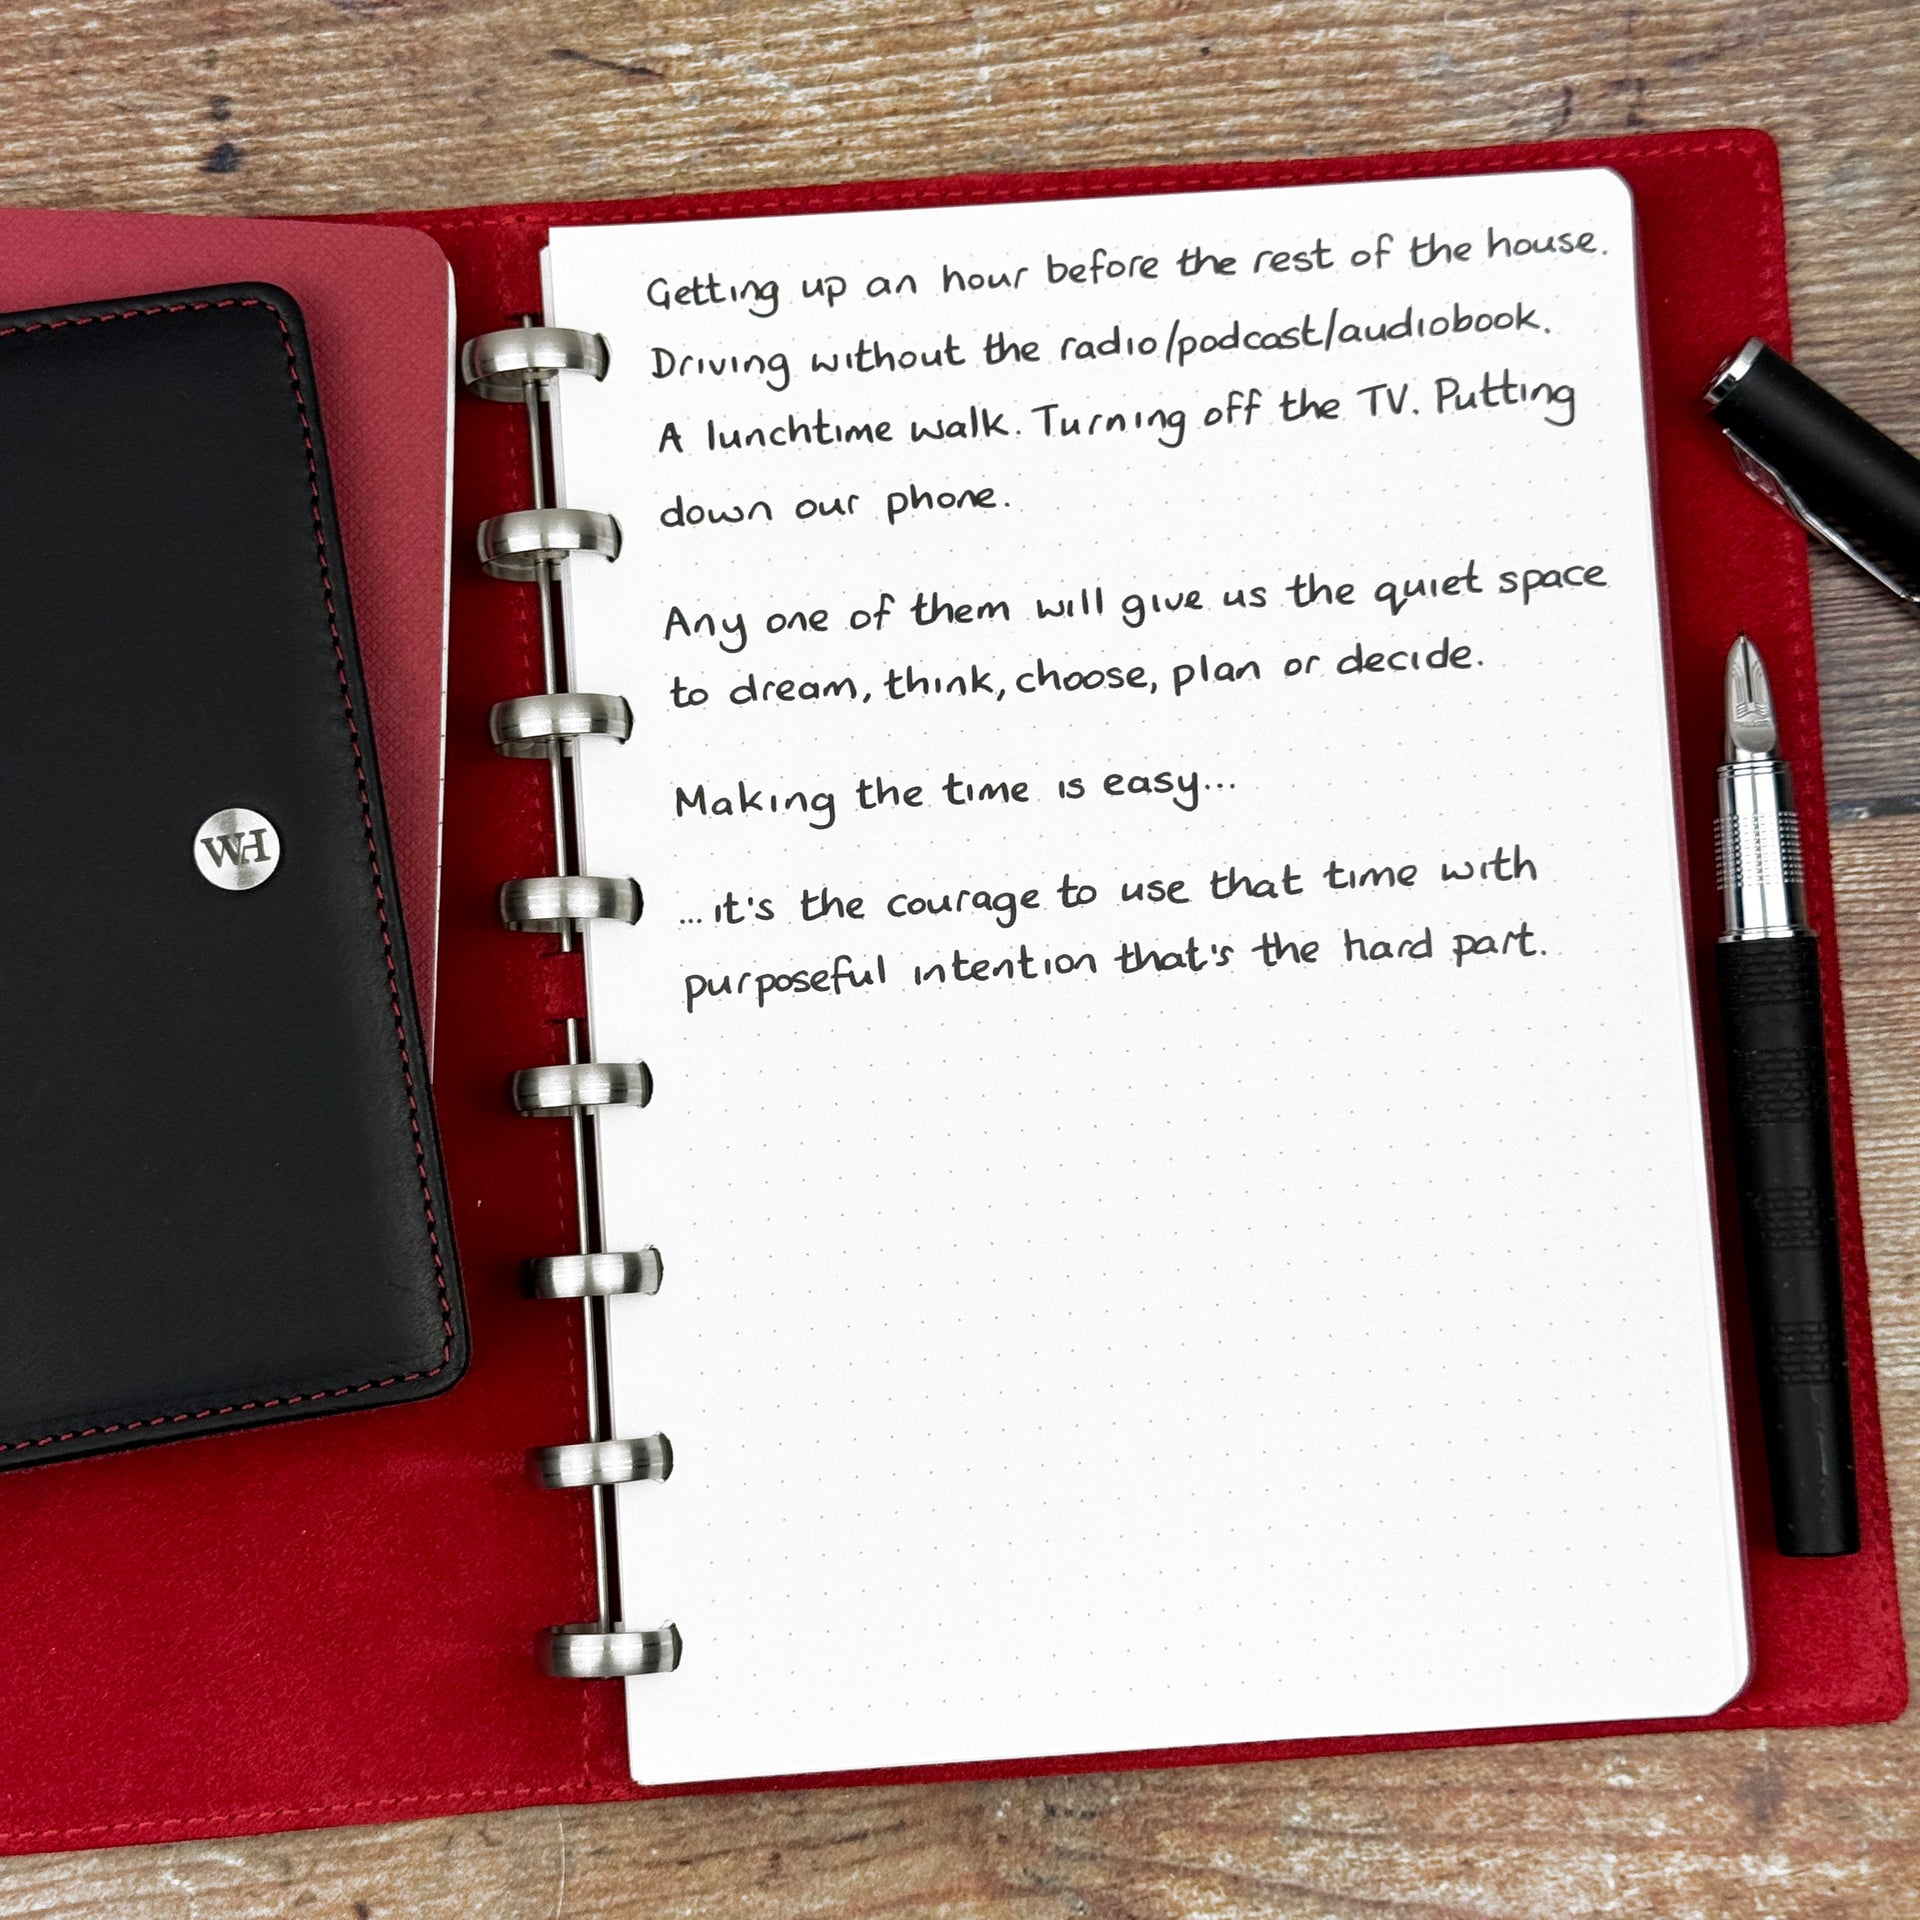 Getting up an hour before the rest of the house.
Driving without the radio/podcast/audiobook.
A lunchtime walk. Turning off the TV. Putting
down our phone.
Any one of them will give us the quiet space
to dream, think, choose, plan or decide.
Making the time is easy...
...it's the courage to use that time with
purposeful intention that's the hard part.
WH